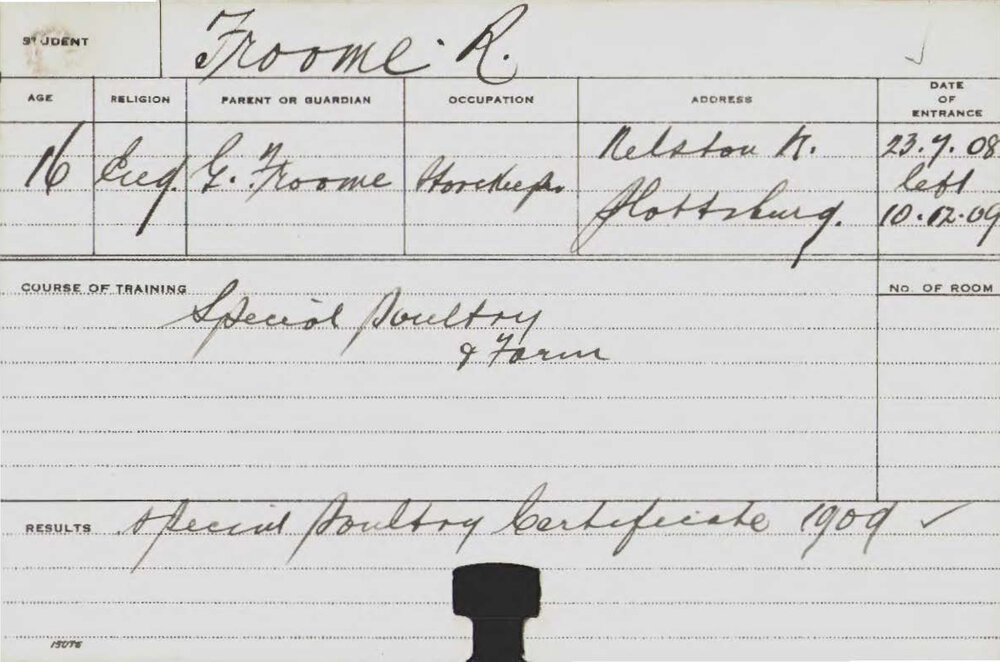 STUDENT Froome R.
AGE RELIGION PARENT OR GUARDIAN OCCUPATION ADDRESS DATE OF ENTRANCE
16 Eng. G. Froome Storekeepr. 23.7.08
left
10.12.09
COURSE OF TRAINING No. OF ROOM
Special Poultry
& Farm
RESULTS Special Poultry Certificate 1909 ✓
15076